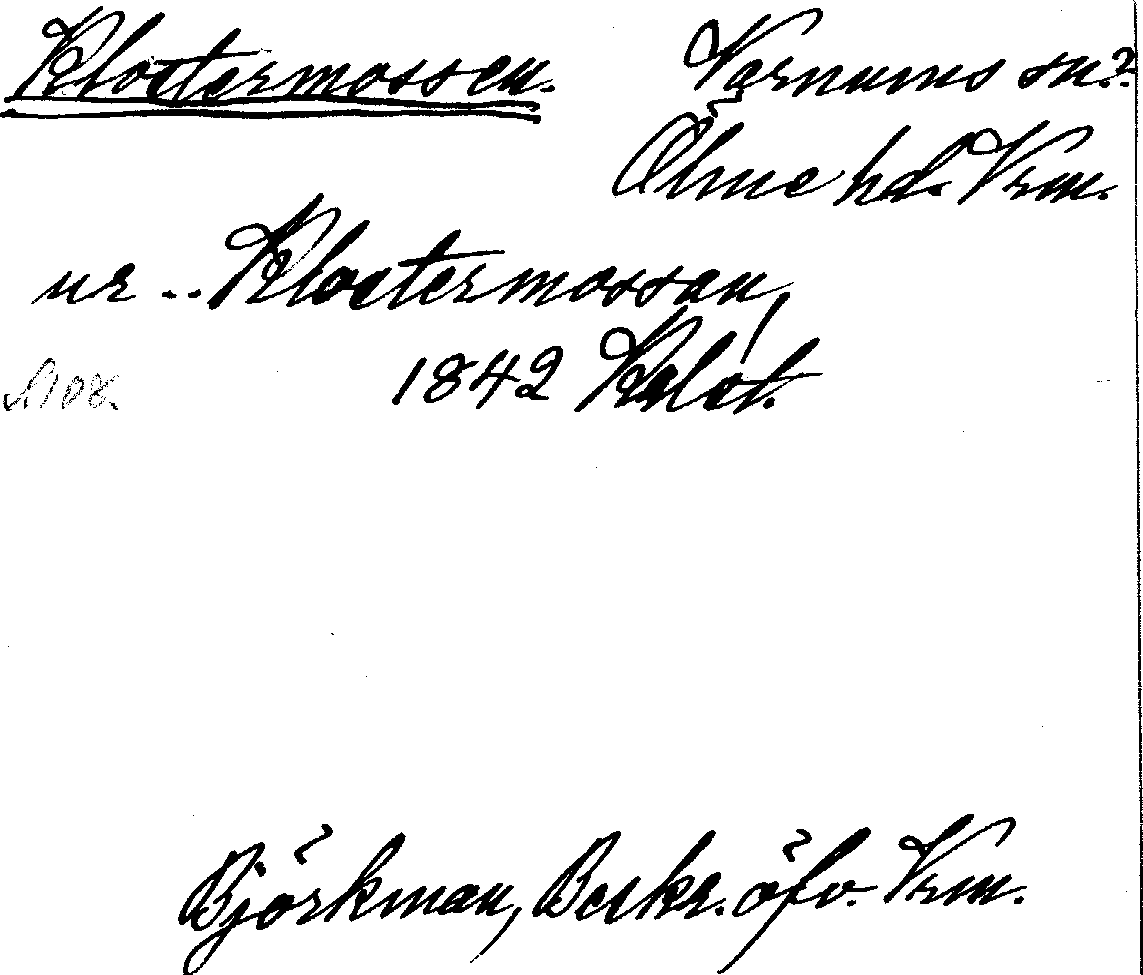 Klostermossen. Varnums sn?
Ölme hd. Vrm.
ur .. Klostermossan,
1842
Björkman, Beskr. öfv. Vrm.